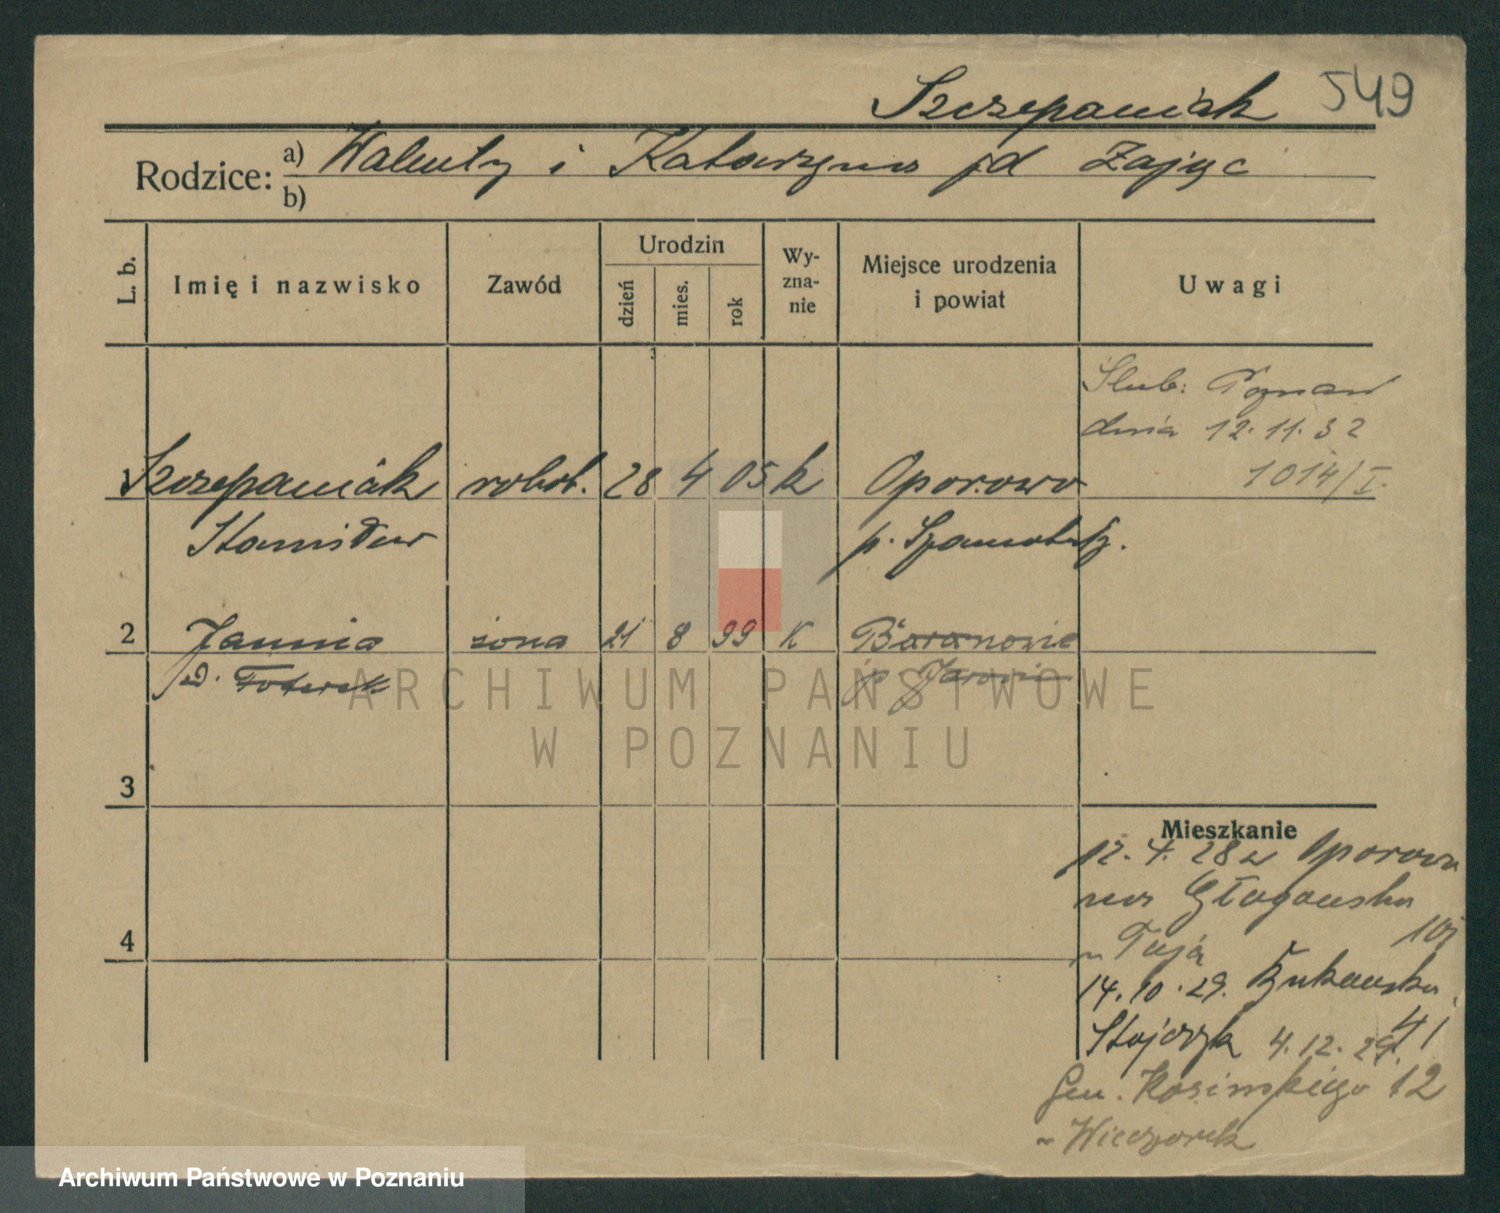 Szczepaniak 549
Rodzice: a) Walenty i Katarzyna z d Zając
b)
L. b. Imię i nazwisko Zawód Urodzin dzień mies. rok Wyznanie Miejsce urodzenia i powiat Uwagi
Ślub: Poznań
dnia 12.11.32
1014/I.
1 Szczepaniak robot. 28 4 05 k Oporowo
Stanisław p. Szamotuły.
2 Janina żona 21 8 99 K Baranowie
p. Jarocin
3
4
Mieszkanie
12.4.28 z Oporowa
na Głogowska
14.10.29. Bukowska
41
4.12.29.
Gen. Kosińskiego 12
~ Wieczorek
ARCHIWUM PAŃSTWOWE
W POZNANIU
Archiwum Państwowe w Poznaniu